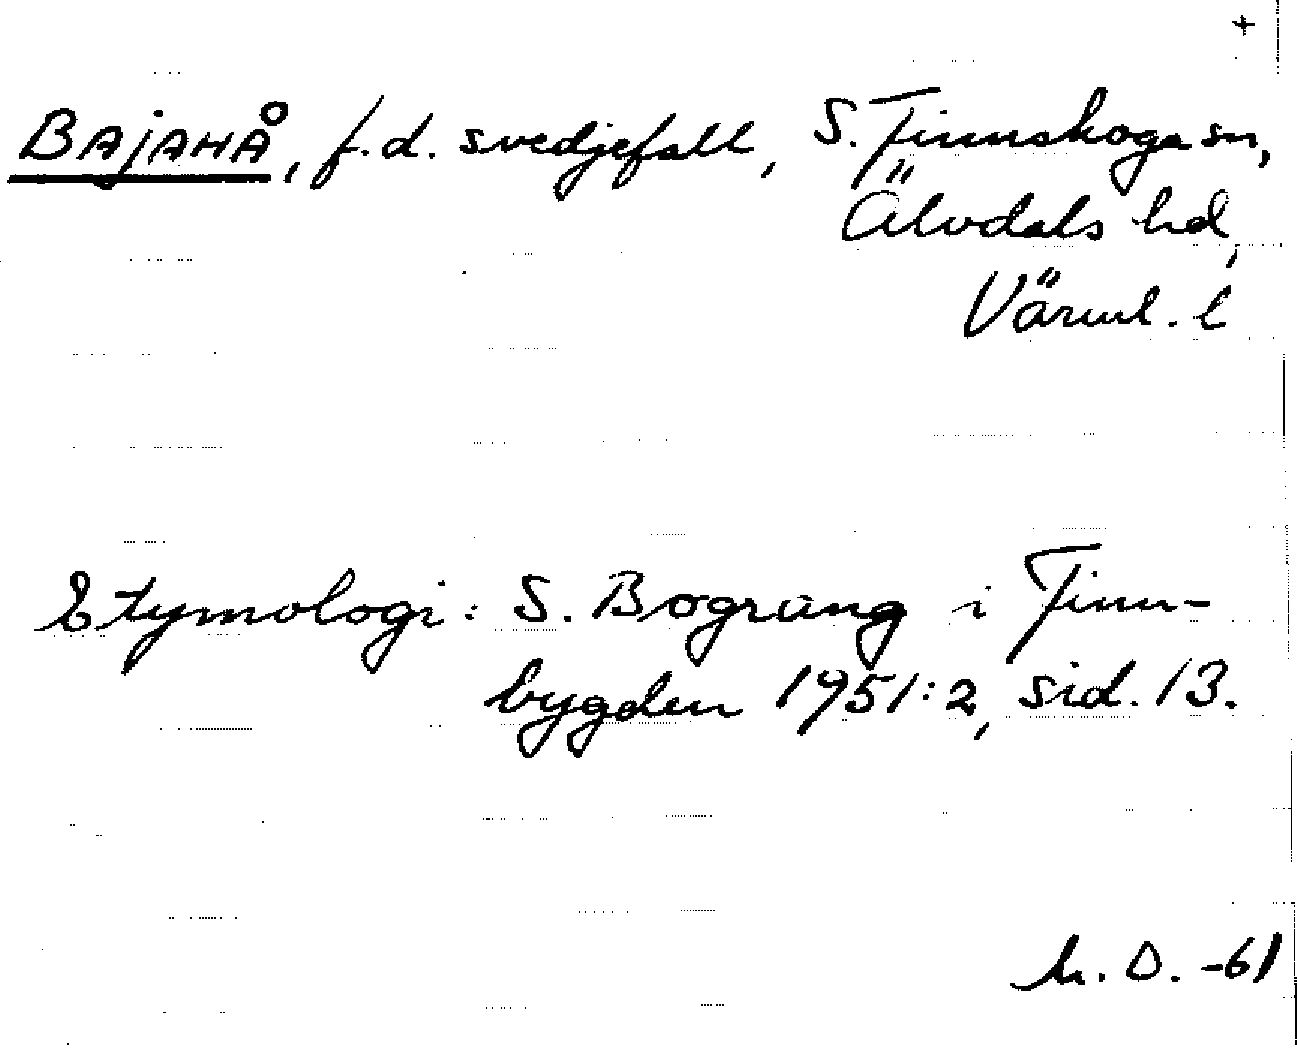 +
BAJAHÅ, f.d. svedjefall, S. Finnskoga sn,
Älvdals hd,
Värml. l
Etymologi: S. Bograng i Finn-
bygden 1951:2, sid. 13.
D. -61